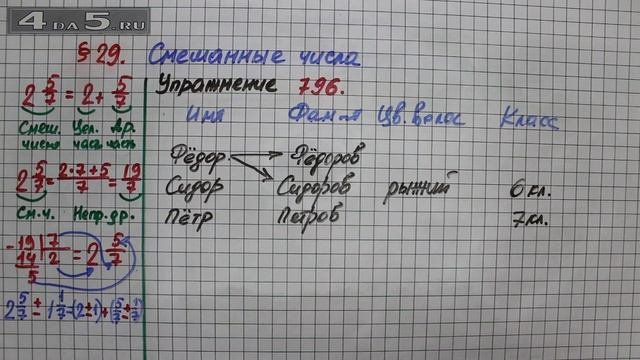 4DA5.RU
§ 29. Смешанные числа
Упражнение 796.
2 5/7 = 2 + 5/7
Смеш. число Цел. часть Др. часть
2 5/7 = (2·7+5)/7 = 19/7
См.ч. Непр. др.
19 | 7
14 | 2 = 2 5/7
5
2 5/7 ± 1 1/7 = (2±1) + (5/7 ± 1/7)
Имя Фам-я Цв. волос Класс
Фёдор Фёдоров
Сидор Сидоров рыжий 6 кл.
Пётр Петров 7 кл.